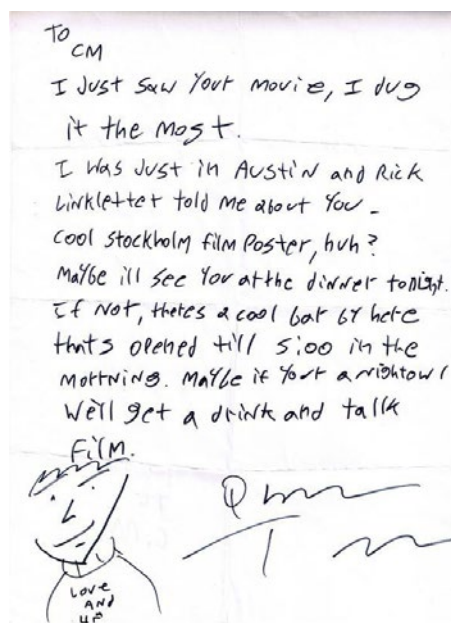 To
CM
I Just Saw Your movie, I dug
it the most.
I was Just in AustiN and Rick
Linkletter told me about You -
Cool Stockholm film Poster, huh?
Maybe ill see You at the dinner tonight.
If Not, theres a cool bar by here
thats opened till 5:00 in the
morrning. Maybe if Your a nightowl
We'll get a drink and tallk
FilM.
Love
AND